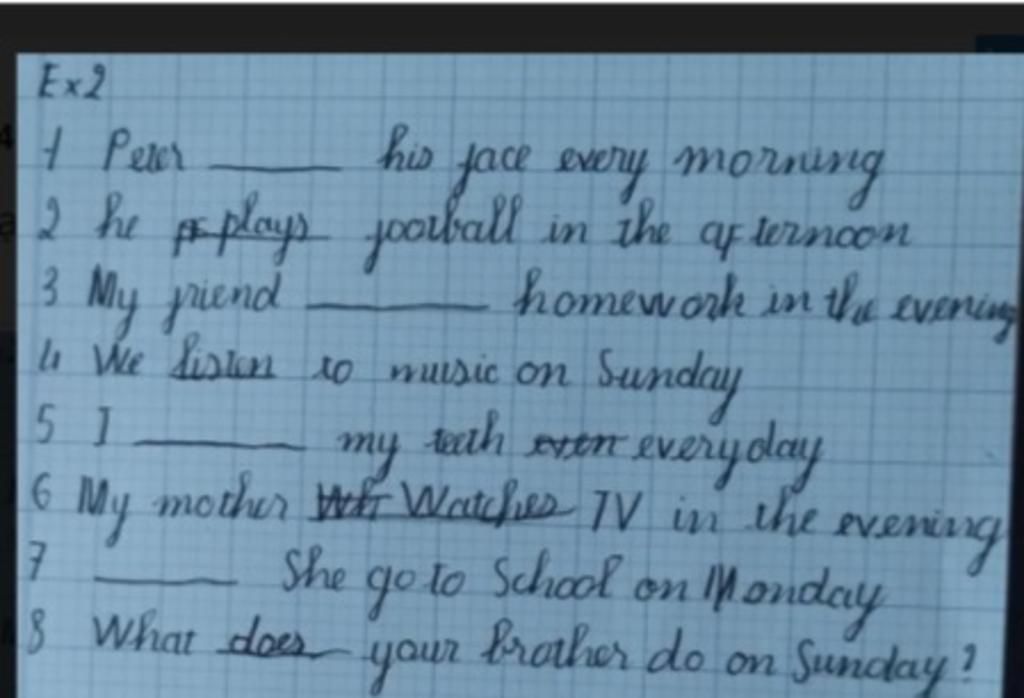 Ex2
1 Peter ______ his face every morning
2 he plays football in the afternoon
3 My friend ______ homework in the evening
4 We listen to music on Sunday
5 I ______ my teeth every day
6 My mother Watches TV in the evening
7 ______ She go to School on Monday
8 What does your brother do on Sunday?